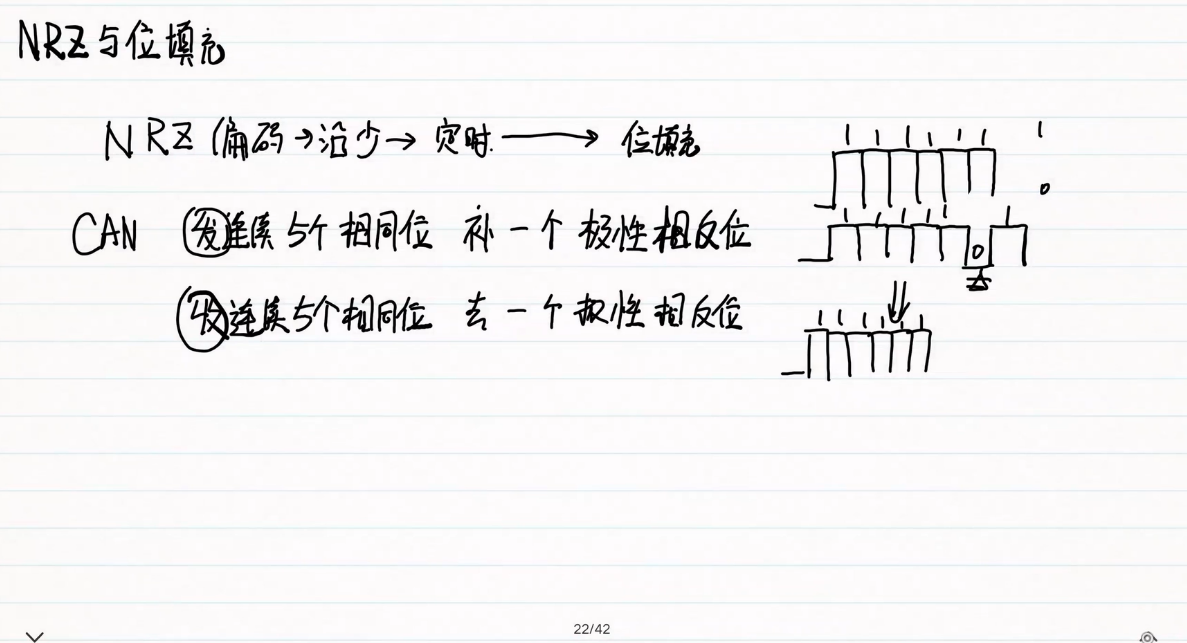 NRZ与位填充
NRZ 编码→沿少→ 定时 → 位填充
CAN 发连续5个相同位 补一个极性相反位
收连续5个相同位 去一个极性相反位
1 1 1 1 1 1
1
0
1 1 1 1 1 0 1
1 1 1 1 1 1
22/42